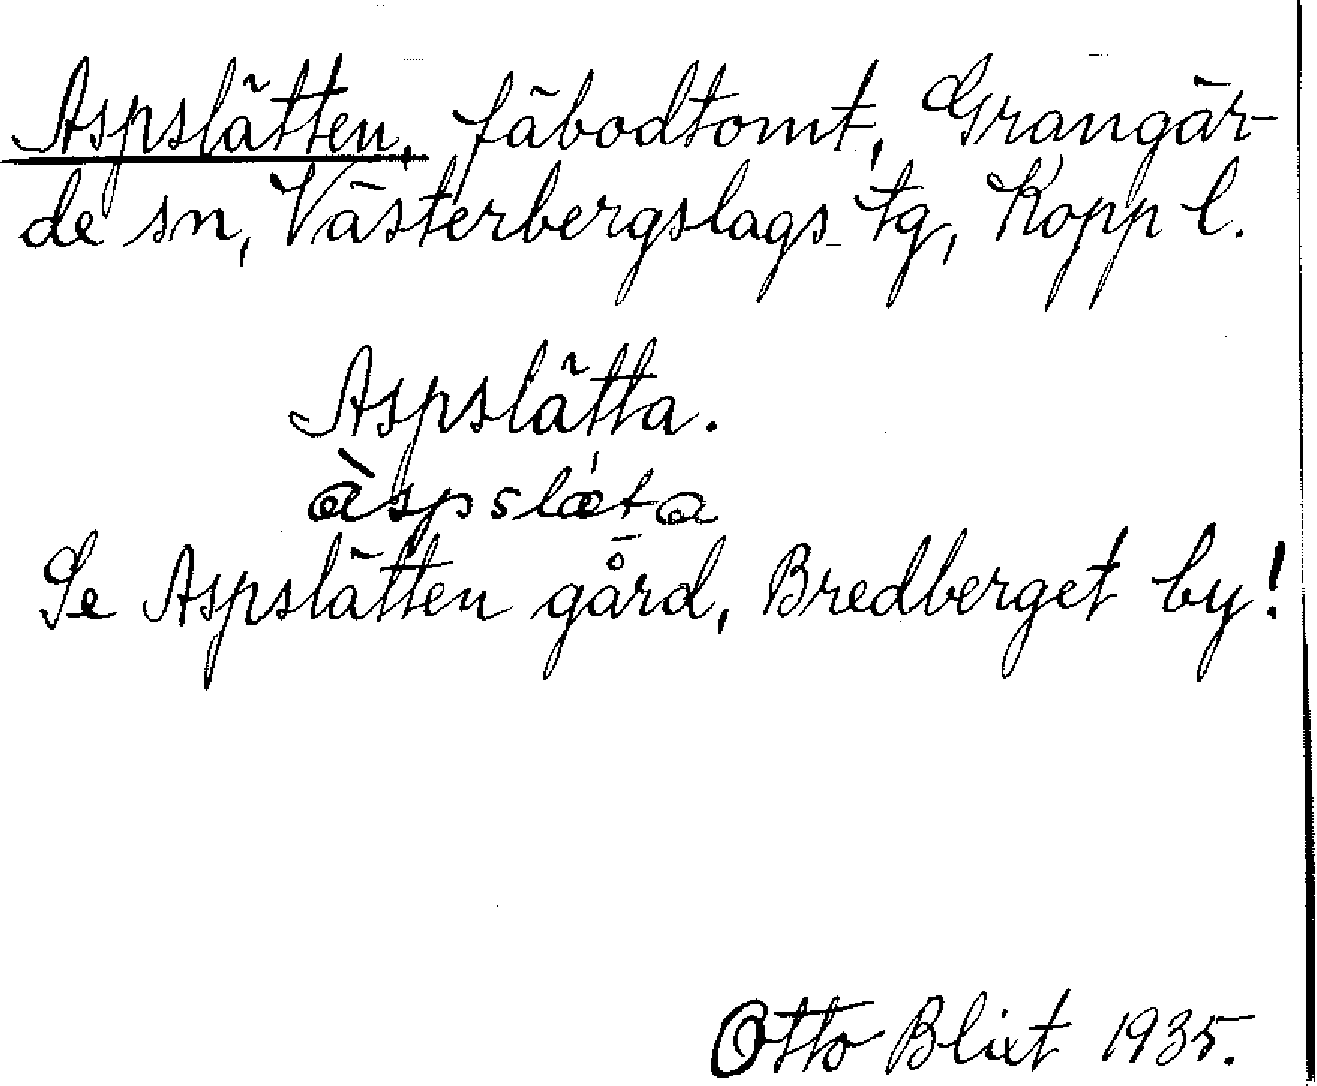 Aspslätten, fäbodtomt, Grangär-
de sn, Västerbergslags tg, Kopp l.
Aspslätta.
àspslæ̍ta
Se Aspslätten gård, Bredberget by!
Otto Blixt 1935.